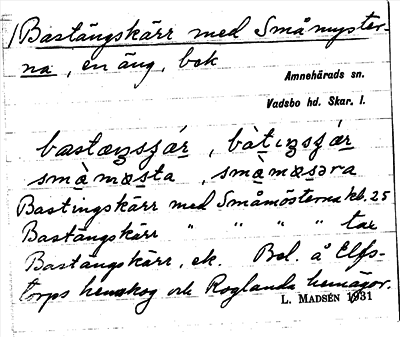 1) Bastängskärr med Småmyster-
na, en äng, bok
Amnehärads sn.
Vadsbo hd. Skar. l.
smæ̀mœsta, smæ̀mœsəra
Bastingskärr med Småmösterna kb. 25
Bastängskärr " " " " tax
Bastängskärr, ek. Bel. å Elfs-
torps hemskog och Roglanda hemägor.
L. MADSÉN 1931